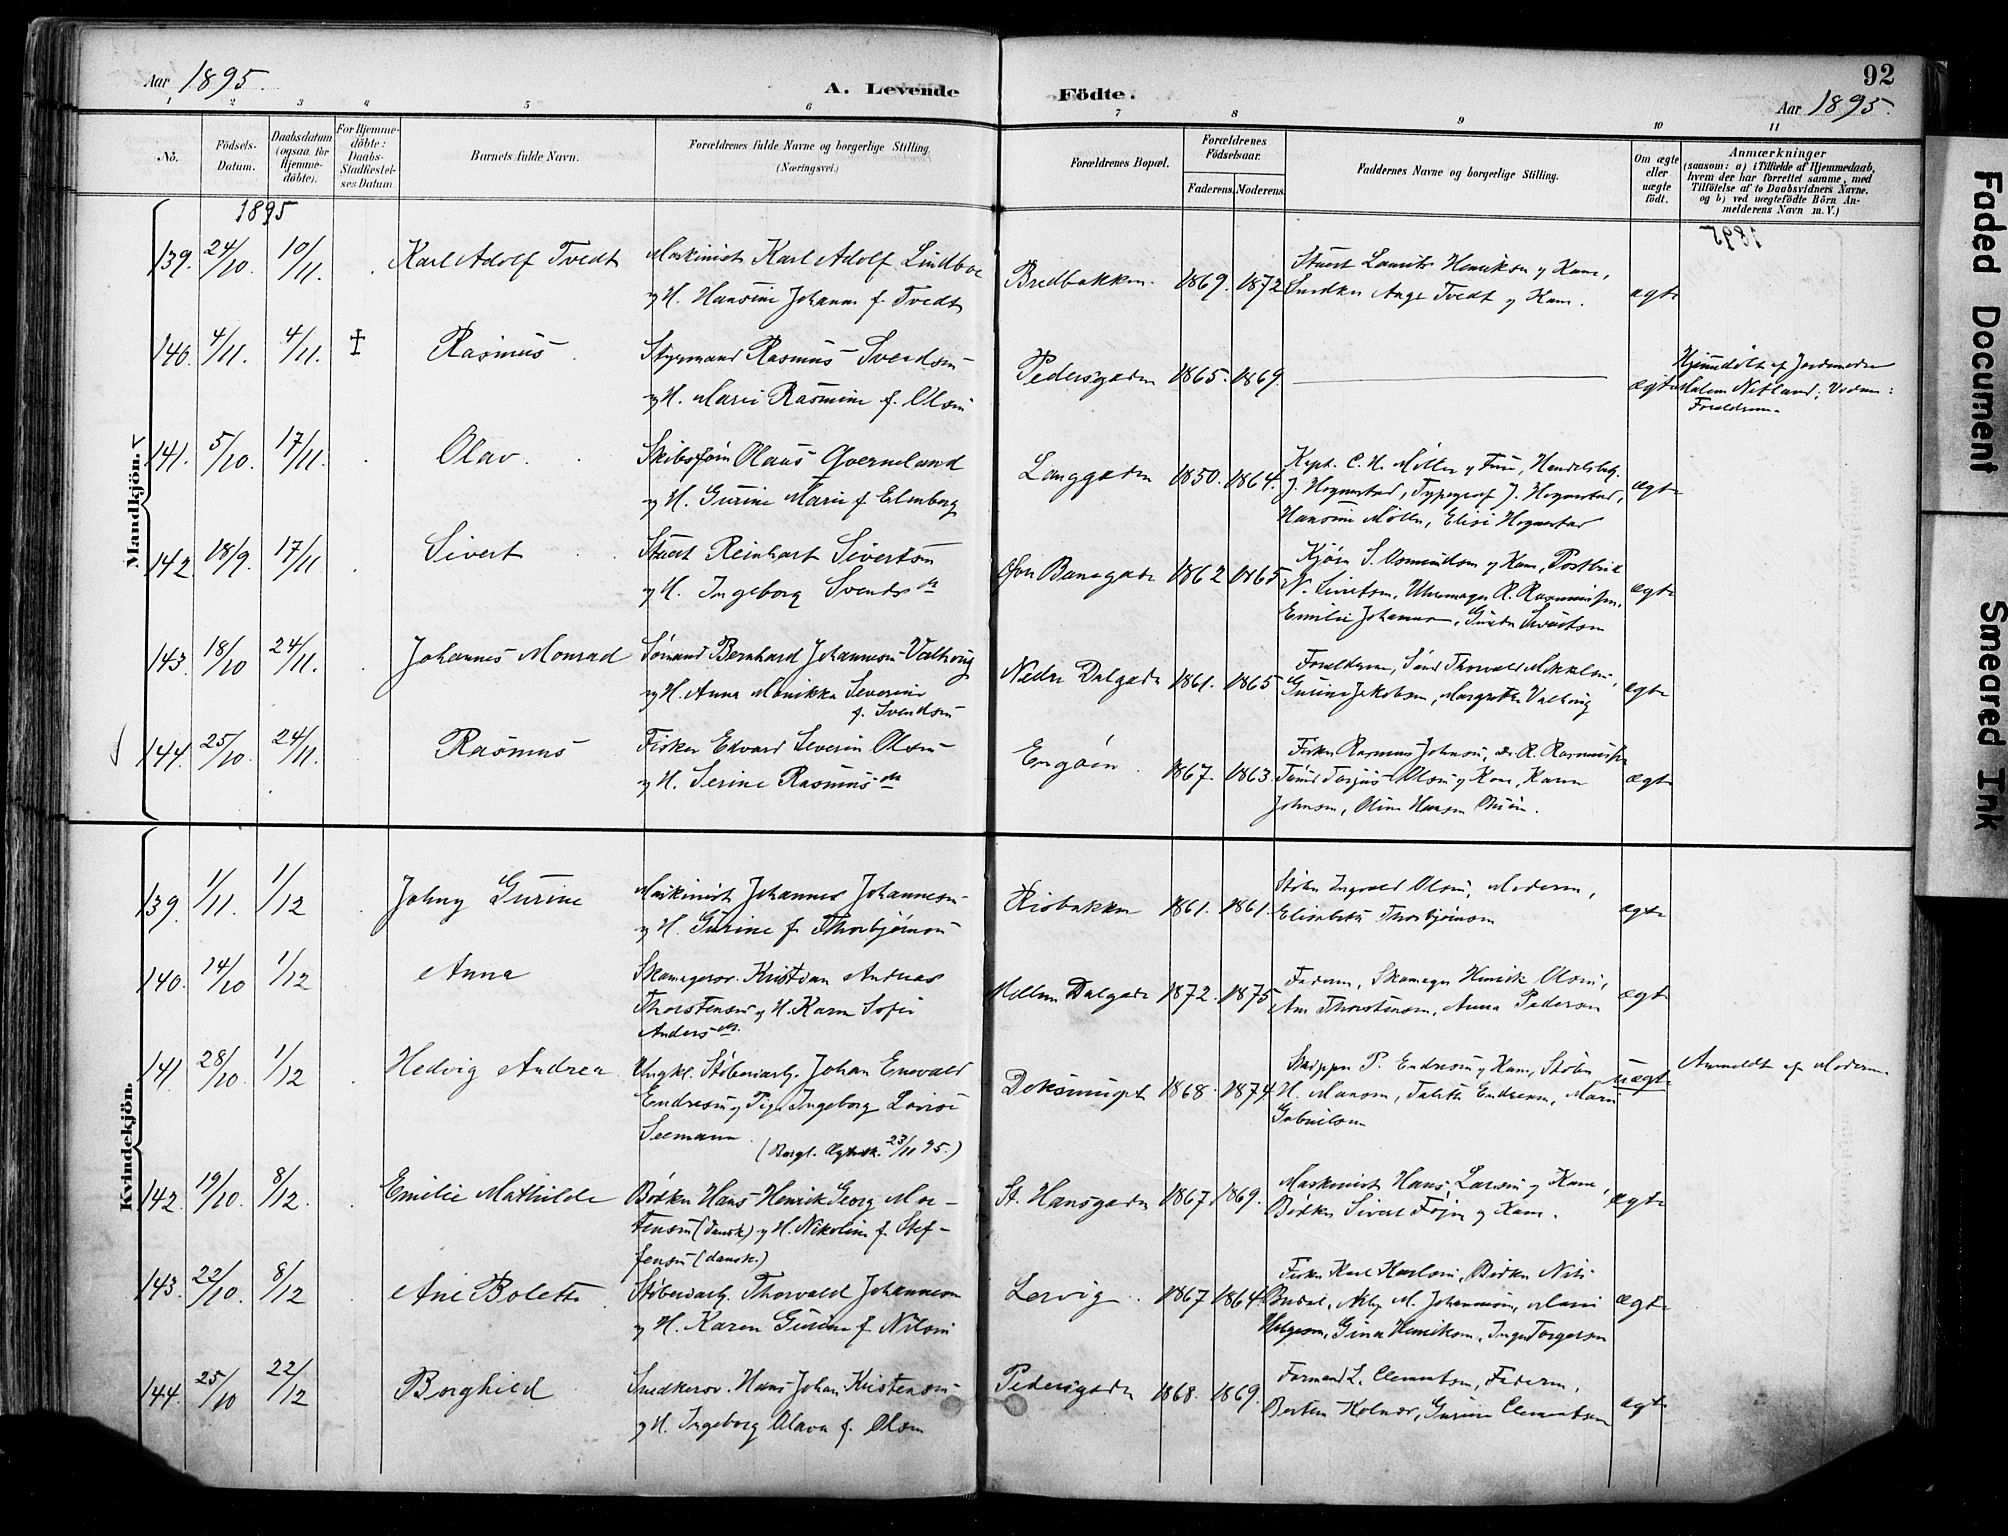 Aar 1895.
A. Levende
Födte.
92
Aar 1895.
1 2 3 4 5 6 7 8 9 10 11
Nö.
Födsels-
Datum.
Daabsdatum
(ogsaa for
Hjemme-
döbte).
For Hjemme-
döbte:
Daabs-
Stadfæstel-
ses Datum.
Barnets fulde Navn.
Forældrenes fulde Navne og borgerlige Stilling.
(Næringsvei.)
Forældrenes Bopæl.
Forældrenes
Födselsaar.
Faderens. Moderens.
Faddernes Navne og borgerlige Stilling.
Om ægte
eller
uægte
født.
Anmærkninger
(saasom: a) i Tilfælde af Hjemmedaab,
hvem der har forrettet samme, med
Tilföielse af to Daabsvidners Navne.
og b) ved uægtefödte Börn An-
melderens Navn m. V.)
Mandkjön.
1895
139. 24/10. 10/11. Karl Adolf Tvedt
Maskinist Karl Adolf Lindboe
og H. Hansine Johanne f. Tvedt
Bredbakken. 1869. 1872
Stuert Lauritz Henriksen og Kone,
Snedker Aage Tvedt og Kone.
ægte
140. 4/11. 4/11. Rasmus
Styrmand Rasmus Svendsen
og H. Marie Rasmine f. Olsen
Pedersgaden 1865. 1869.
ægte
Hjemdøbt af Jordmoder
Malene Netland; Vidner:
Forældrene
141. 5/10. 17/11. Olav
Skibsfører Olaus Qverneland
og H. Gurine Marie f. Erlenborg
Langgaden 1850. 1864.
Kapt. C. H. Møller og Frue, Handelsbetj.
J. Hognestad, Typograf J. Hognestad,
Hansine Møller, Elise Hognestad
ægte
142. 18/9. 17/11. Sivert
Stuert Reinhart Sivertsen
og H. Ingeborg Svendsdtr
Øvre Banegade 1862 1865
Kjører S. Osmundsen og Kone, Postbud
N. Sivertsen, Uhrmager R. Rasmussen,
Emilie Johannesen, Gurine Sivertsen
ægte
143. 18/10 24/11. Johannes Monrad
Sømand Bernhard Johannesen Valhoug
og H. Anna Monikka Severine
f. Svendsen
Nedre Dalgade 1861. 1865
Forældrene, Sømd Thorvald Mikkelsen,
Gurine Jakobsen, Margrethe Valhoug
ægte
144. 25/10. 24/11. Rasmus
Fisker Edvard Severin Olsen
og H. Serine Rasmusdtr
Engøen. 1867. 1863.
Fisker Rasmus Johnsen, do R. Rasmussen
Sømd Torjus Olsen og Kone, Karen
Johnsen, Oline Hansen Buøen.
ægte
Kvindekjön.
139. 1/11. 1/12 Johny Gurine
Maskinist Johannes Johannesen
og H. Gurine f. Thorbjørnsen
Risbakken 1861. 1861.
Støber Ingvald Olsen, Moderen,
Elisabeth Thorbjørnsen
ægte
140. 14/10 1/12 Anna
Skomagersv. Kristian Andreas
Thorstensen og H. Karen Sofie
Andersdtr.
Mellem Dalgade 1872. 1875
Faderen, Skomager Henrik Olsen,
Ane Thorstensen, Anna Pedersen
ægte
141. 28/10. 1/12 Hedvig Andrea
Ungkl. Støberiarb. Johan Enevald
Endresen og Pige Ingeborg Lovise
Seemann. (Borgl. Ægtesk. 23/11 95.)
Doksmuget 1868. 1874
Skipper P. Endresen og Kone, Støber
H. Monsen, Talette Endresen, Marie
Gabrielsen
uægte
Anmeldt af Moderen
142. 19/10. 8/12. Emilie Mathilde
Bødker Hans Henrik Georg Mor-
tensen (dansk) og H. Nikoline f. Stef-
fensen (dansk.)
St. Hansgaden 1867. 1869.
Maskinist Hans Larsen og Kone,
Bødker Sivert Fojen og Kone.
ægte
143. 22/10. 8/12 Ane Bolette
Støberiarb. Thorvald Johannesen
og H. Karen Gurine f. Nilsen
Lervig. 1867 1864.
Fisker Karl Karlsen, Bødker Nils
Budal, Arb. M. Johannesen, Marie
Helgesen, Gina Henriksen, Inger Torgersen
ægte
144. 25/10 22/12 Borghild
Snedkersv. Hans Johan Kristensen
og H. Ingeborg Olava f. Olsen
Pedersgaden 1868. 1869.
Formand L. Clementsen, Faderen,
Berthe Kolnes, Gurine Clementsen
ægte
Faded Document
Smeared Ink